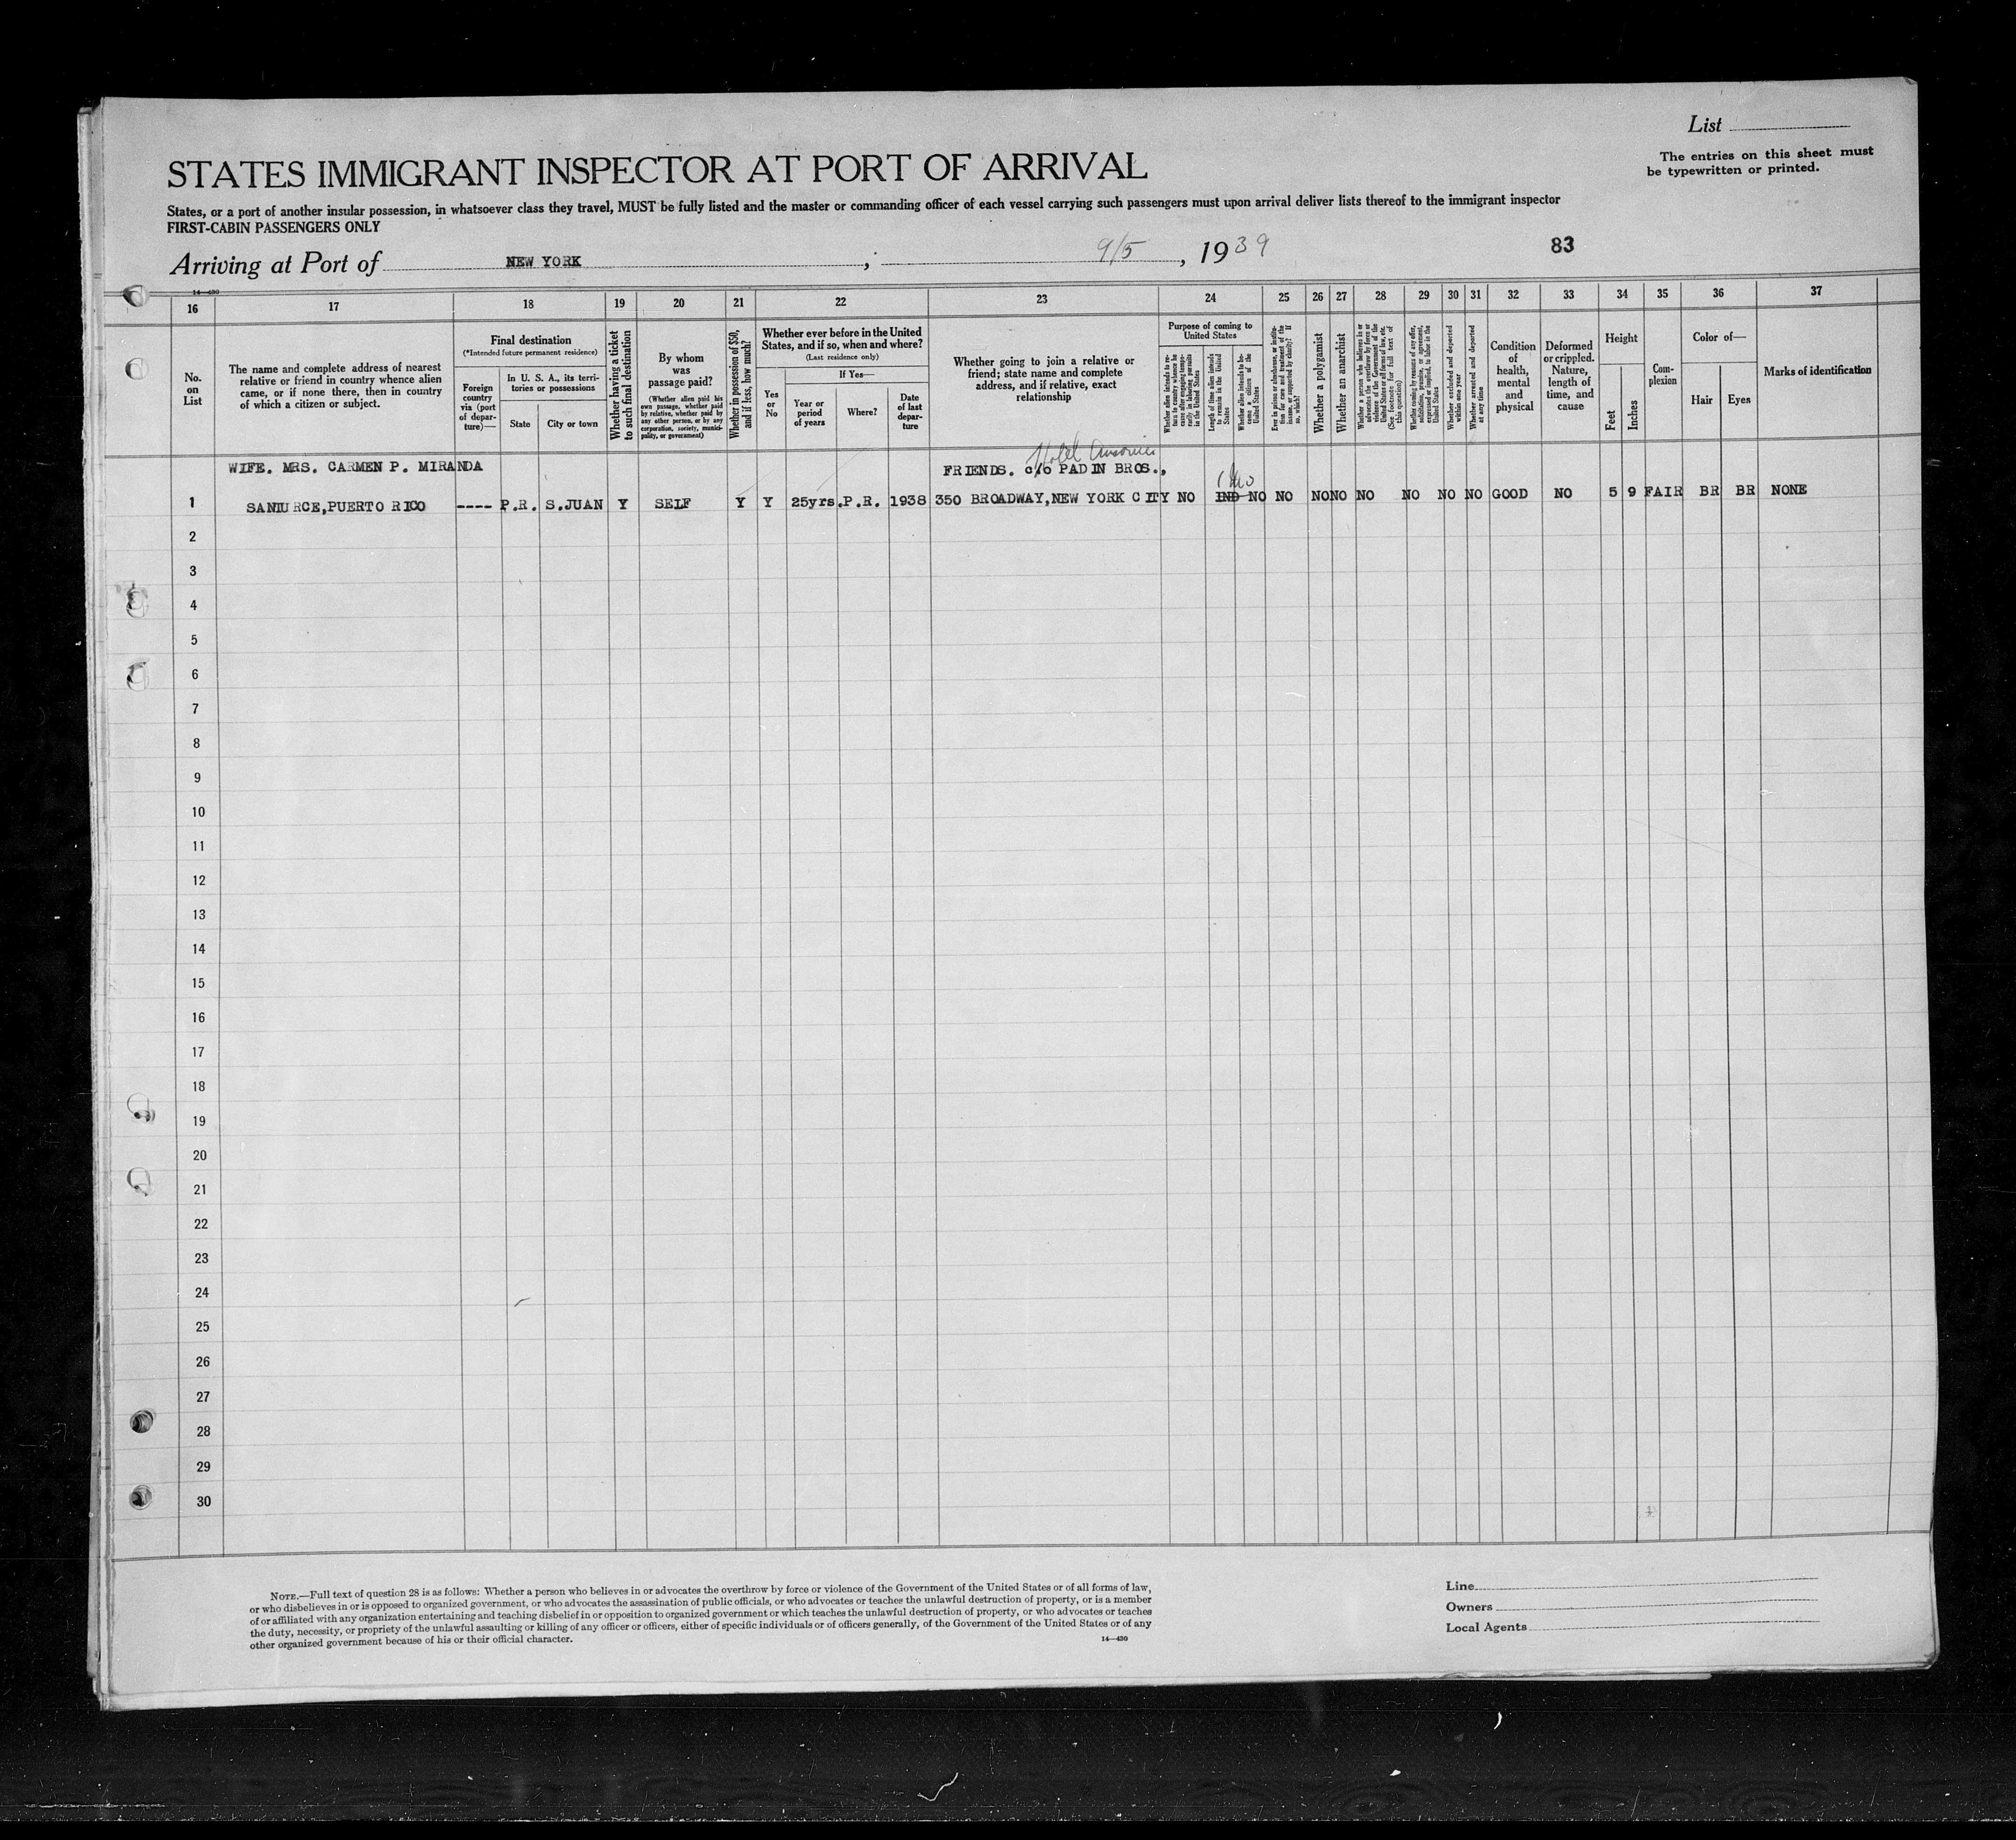 List
The entries on this sheet must
be typewritten or printed.
STATES IMMIGRANT INSPECTOR AT PORT OF ARRIVAL
States, or a port of another insular possession, in whatsoever class they travel, MUST be fully listed and the master or commanding officer of each vessel carrying such passengers must upon arrival deliver lists thereof to the immigrant inspector
FIRST-CABIN PASSENGERS ONLY
Arriving at Port of NEW YORK , 9/5 , 1939
83
14—430
16 17 18 19 20 21 22 23 24 25 26 27 28 29 30 31 32 33 34 35 36 37
No.
on
List
The name and complete address of nearest
relative or friend in country whence alien
came, or if none there, then in country
of which a citizen or subject.
Final destination
(*Intended future permanent residence)
Foreign
country
via (port
of depar-
ture)—
In U. S. A., its terri-
tories or possessions
State
City or town
Whether having a ticket
to such final destination
By whom
was
passage paid?
(Whether alien paid his
own passage, whether paid
by relative, whether paid by
any other person, or by any
corporation, society, munici-
pality, or government)
Whether in possession of $50,
and if less, how much?
Whether ever before in the United
States, and if so, when and where?
(Last residence only)
Yes
or
No
If Yes—
Year or
period
of years
Where?
Date
of last
depar-
ture
Whether going to join a relative or
friend; state name and complete
address, and if relative, exact
relationship
Purpose of coming to
United States
Whether alien intends to re-
turn to country whence he
came after engaging tempo-
rarily in laboring pursuits
in the United States
Length of time alien intends
to remain in the United
States
Whether alien intends to be-
come a citizen of the
United States
Ever in prison or almshouse, or institu-
tion for care and treatment of the
insane, or supported by charity? If
so, which?
Whether a polygamist
Whether an anarchist
Whether a person who believes in or
advocates the overthrow by force or
violence of the Government of the
United States or all forms of law, etc.
(See footnote for full text of
this question)
Whether coming by reason of any offer,
solicitation, promise, or agreement,
expressed or implied, to labor in the
United States
Whether excluded and deported
within one year
Whether arrested and deported
at any time
Condition
of
health,
mental
and
physical
Deformed
or crippled.
Nature,
length of
time, and
cause
Height
Feet
Inches
Com-
plexion
Color of—
Hair
Eyes
Marks of identification
Hotel
WIFE. MRS. CARMEN P. MIRANDA FRIENDS. c/o PADIN BROS.,
1 Mo
1 SANTURCE,PUERTO RICO ---- P.R. S.JUAN Y SELF Y Y 25yrs. P.R. 1938 350 BROADWAY,NEW YORK CITY NO IND NO NO NO NO NO NO NO NO GOOD NO 5 9 FAIR BR BR NONE
2
3
4
5
6
7
8
9
10
11
12
13
14
15
16
17
18
19
20
21
22
23
24
25
26
27
28
29
30
NOTE.—Full text of question 28 is as follows: Whether a person who believes in or advocates the overthrow by force or violence of the Government of the United States or of all forms of law,
or who disbelieves in or is opposed to organized government, or who advocates the assassination of public officials, or who advocates or teaches the unlawful destruction of property, or is a member
of or affiliated with any organization entertaining and teaching disbelief in or opposition to organized government or which teaches the unlawful destruction of property, or who advocates or teaches
the duty, necessity, or propriety of the unlawful assaulting or killing of any officer or officers, either of specific individuals or of officers generally, of the Government of the United States or of any
other organized government because of his or their official character.
14—430
Line
Owners
Local Agents